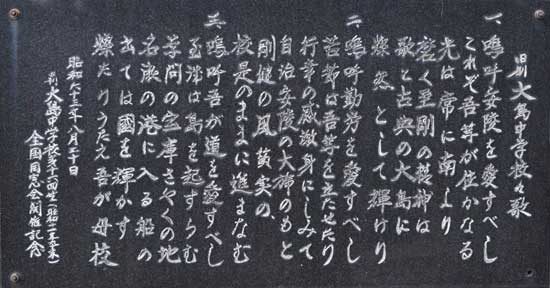 旧制 大島中学校々歌
一、嗚呼安陵を愛すべし
これぞ吾等が住かなる
光は常に南より
磨く至剛の精神は
歌と古典の大島に
燦然として輝けり
二、嗚呼勤労を愛すべし
苦節は吾等を立たせたり
行幸の感激身にしみて
自治安陵の大旆のもと
剛健の風質実の
校是のままに進まなむ
三、嗚呼吾が道を愛すべし
至誠は島を起すらむ
学問の宝庫さやくの地
名瀬の港に入る船の
出ては國を輝かす
燦たりうたえ吾が母校
昭和六十三年八月二十日
旧制 大島中学校
全国同窓会開催記念